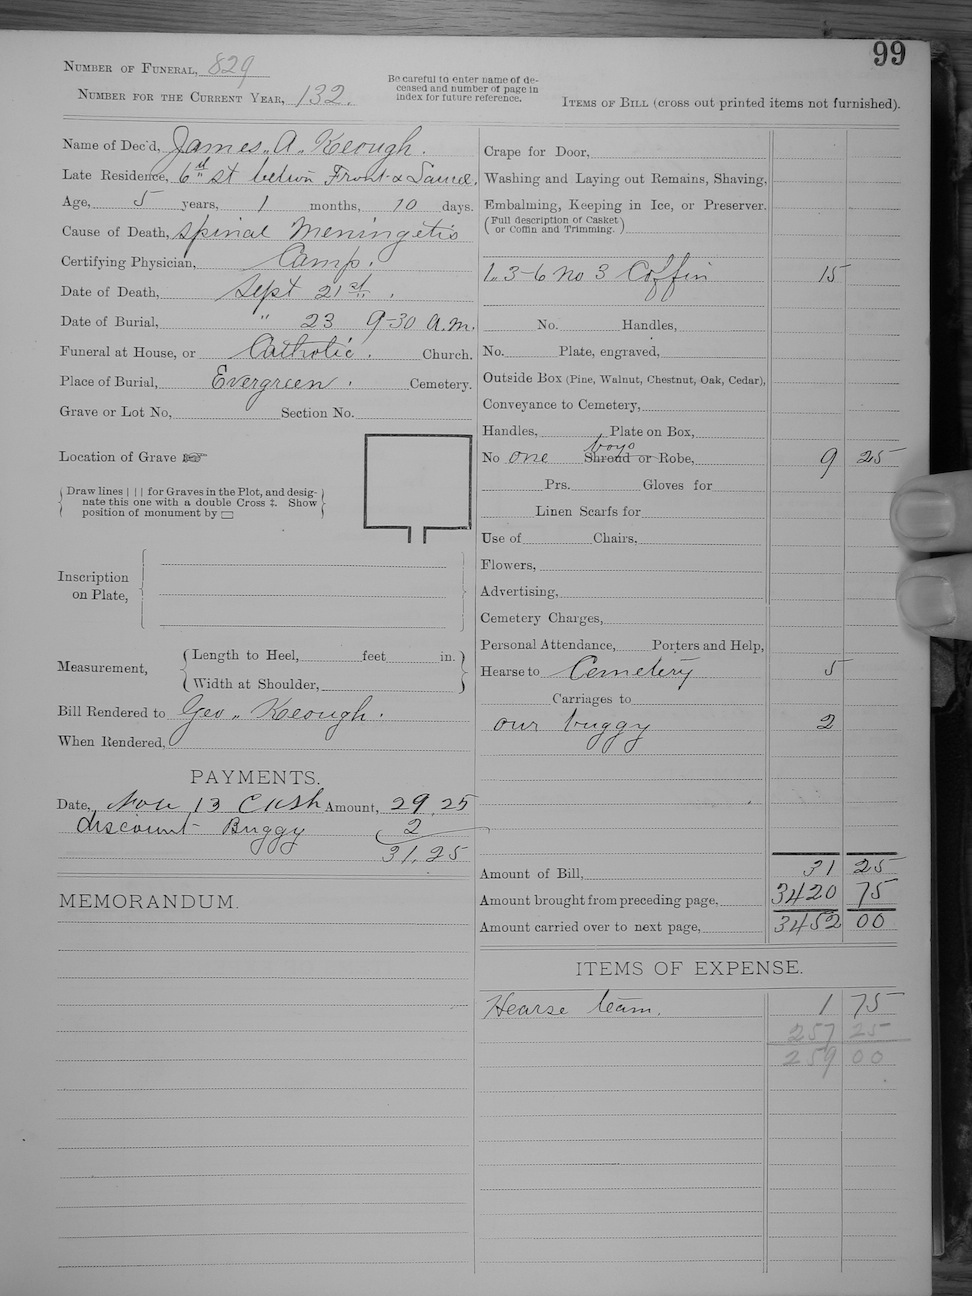 99
NUMBER OF FUNERAL, 829
NUMBER FOR THE CURRENT YEAR, 132.
Be careful to enter name of de-
ceased and number of page in
index for future reference.
ITEMS OF BILL (cross out printed items not furnished).
Name of Dec'd, James. A. Keough.
Late Residence, 6th st betwn Front &
Age, 5 years, 1 months, 10 days.
Cause of Death, Spinal Meningetis
Certifying Physician, Camp.
Date of Death, Sept 21st.
Date of Burial, " 23 9-30 A.M.
Funeral at House, or Catholic. Church.
Place of Burial, Evergreen. Cemetery.
Grave or Lot No, Section No.
Location of Grave ☞
Draw lines | | | for Graves in the Plot, and desig-
nate this one with a double Cross ‡. Show
position of monument by ▭
Inscription
on Plate,
Measurement,
Length to Heel, feet in.
Width at Shoulder,
Bill Rendered to Geo. Keough.
When Rendered,
PAYMENTS.
Date, Nov 13 Cash Amount, 29.25
discount Buggy 2
31.25
MEMORANDUM.
Crape for Door,
Washing and Laying out Remains, Shaving,
Embalming, Keeping in Ice, or Preserver.
(Full description of Casket
or Coffin and Trimming.)
1. 3-6 no 3 Coffin 15
No. Handles,
No. Plate, engraved,
Outside Box (Pine, Walnut, Chestnut, Oak, Cedar),
Conveyance to Cemetery,
Handles, Plate on Box,
boys
No one Shroud or Robe, 9 25
Prs. Gloves for
Linen Scarfs for
Use of Chairs,
Flowers,
Advertising,
Cemetery Charges,
Personal Attendance, Porters and Help,
Hearse to Cemetery 5
Carriages to
our buggy 2
Amount of Bill, 31 25
Amount brought from preceding page, 3420 75
Amount carried over to next page, 3452 00
ITEMS OF EXPENSE.
Hearse team. 1 75
257 25
259 00